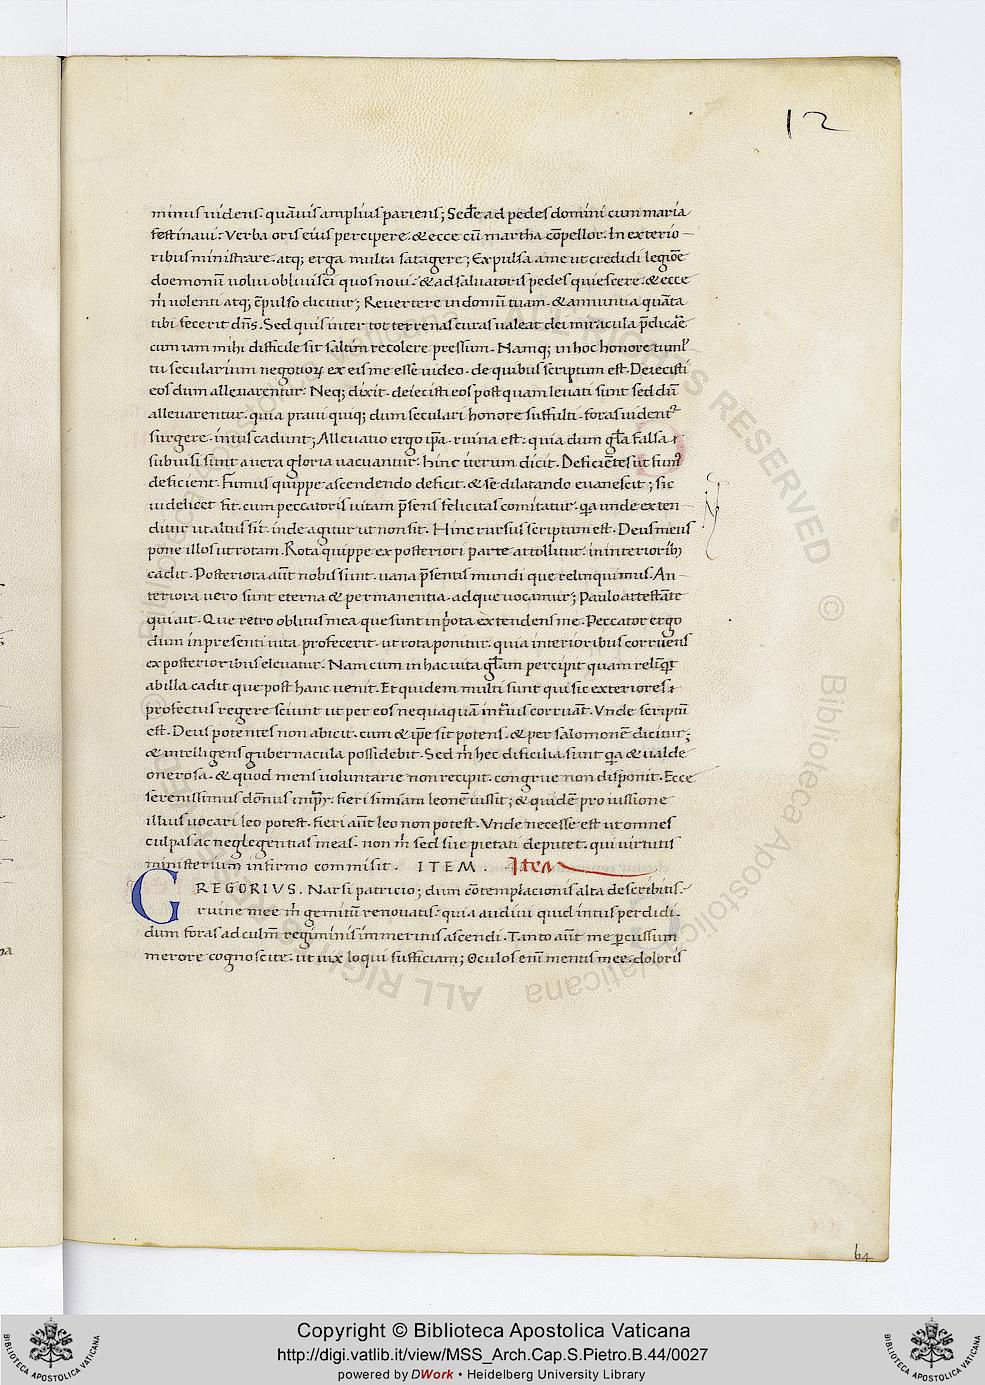 12
minus uidens. quãuis amplius pariens; Sed &̃ ad pedes domini cum maria
festinaui. Verba oris eius percipere. & ecce cũ martha cõpellor. In exterio-
ribus ministrare. atq; erga multa satagere; Expulsa a me ut credidi legiõe
doemoniũ uolui obliuisci quos noui. & ad saluatoris pedes quiescere. & ecce
m̃ uolenti atq; dicitur; Reuertere in domũ tuam. & annuntia quãta
tibi fecerit dñs. Sed quis inter tot terrenas curas ualeat dei miracula p̃dicare
cum iam mihi difficile sit saltim recolere pressum. Namq; in hoc honore
tu secularium negotioꝝ ex eis me esse uideo. de quibus scriptum est. Deiecisti
eos dum alleuarentur. Neq; dixit. deiecisti eos postquam leuati sunt sed dũ
alleuarentur. quia praui quiq; dum seculari honore suffulti. foras uident̃
surgere. intus cadunt; Alleuatio ergo ip̃a. ruina est. quia dum gl̃a falsa
subuisi sunt a uera gloria uacuantur. hinc uerum dicit. Deficiẽtes ut fum̃
deficient. Fumus quippe ascendendo deficit. & se dilatando euanescit; sic
uidelicet fit. cum peccatoris uitam p̃sens felicitas comitatur. qa unde exten-
ditur ut altus sit. inde agitur ut non sit. Hinc rursus scriptum est. Deus meus
pone illos ut rotam. Rota quippe ex posteriori parte attollitur. in interiorib;
cadit. Posteriora aũt nobis sunt. uana p̃sentis mundi que relinquimus. An-
teriora uero sunt eterna & permanentia. ad que uocamur; Paulo attestãte
qui ait. Que retro oblitus mea que sunt in p̃ota extendens me. Peccator ergo
dum in presenti uita profecerit. ut rota ponitur. quia interioribus corruens
ex posterioribus eleuatur. Nam cum in hac uita gl̃am percipit quam
ab illa cadit que post hanc uenit. Et quidem multi sunt qui sic exteriores
profectus regere sciunt ut per eos nequaquã int̃ius corruãt. Vnde scriptũ
est. Deus potentes non abicit. cum & ip̃e sit potens. & per salomonẽ dicitur;
& intelligens gubernacula possidebit. Sed m̃ hec dificilia sunt qa & ualde
onerosa. & quod mens uoluntarie non recipit. congrue non disponit. Ecce
serenissimus dõnus imp̃r. fieri simiam leonẽ iussit; & quidẽ pro iussione
illius uocari leo potest. fieri aũt leo non potest. Vnde necesse est ut omnes
culpas ac neglegentias meas. non m̃ sed sue pietati deputet. qui uirtutis
ministerium infirmo commisit. ITEM. Item
GREGORIVS. Narsi patricio; dum cõtemplacionis alta describitis.
ruine mee m̃ gemitũ renouatis. quia audiui quid intus perdidi.
dum foras ad culm̃ regiminis immeritus ascendi. Tanto aũt me p̲cussum
merore cognoscite. ut uix loqui sufficiam; Oculos enĩ mentis mee. doloris
64
Copyright © Biblioteca Apostolica Vaticana
http://digi.vatlib.it/view/MSS_Arch.Cap.S.Pietro.B.44/0027
powered by DWork • Heidelberg University Library